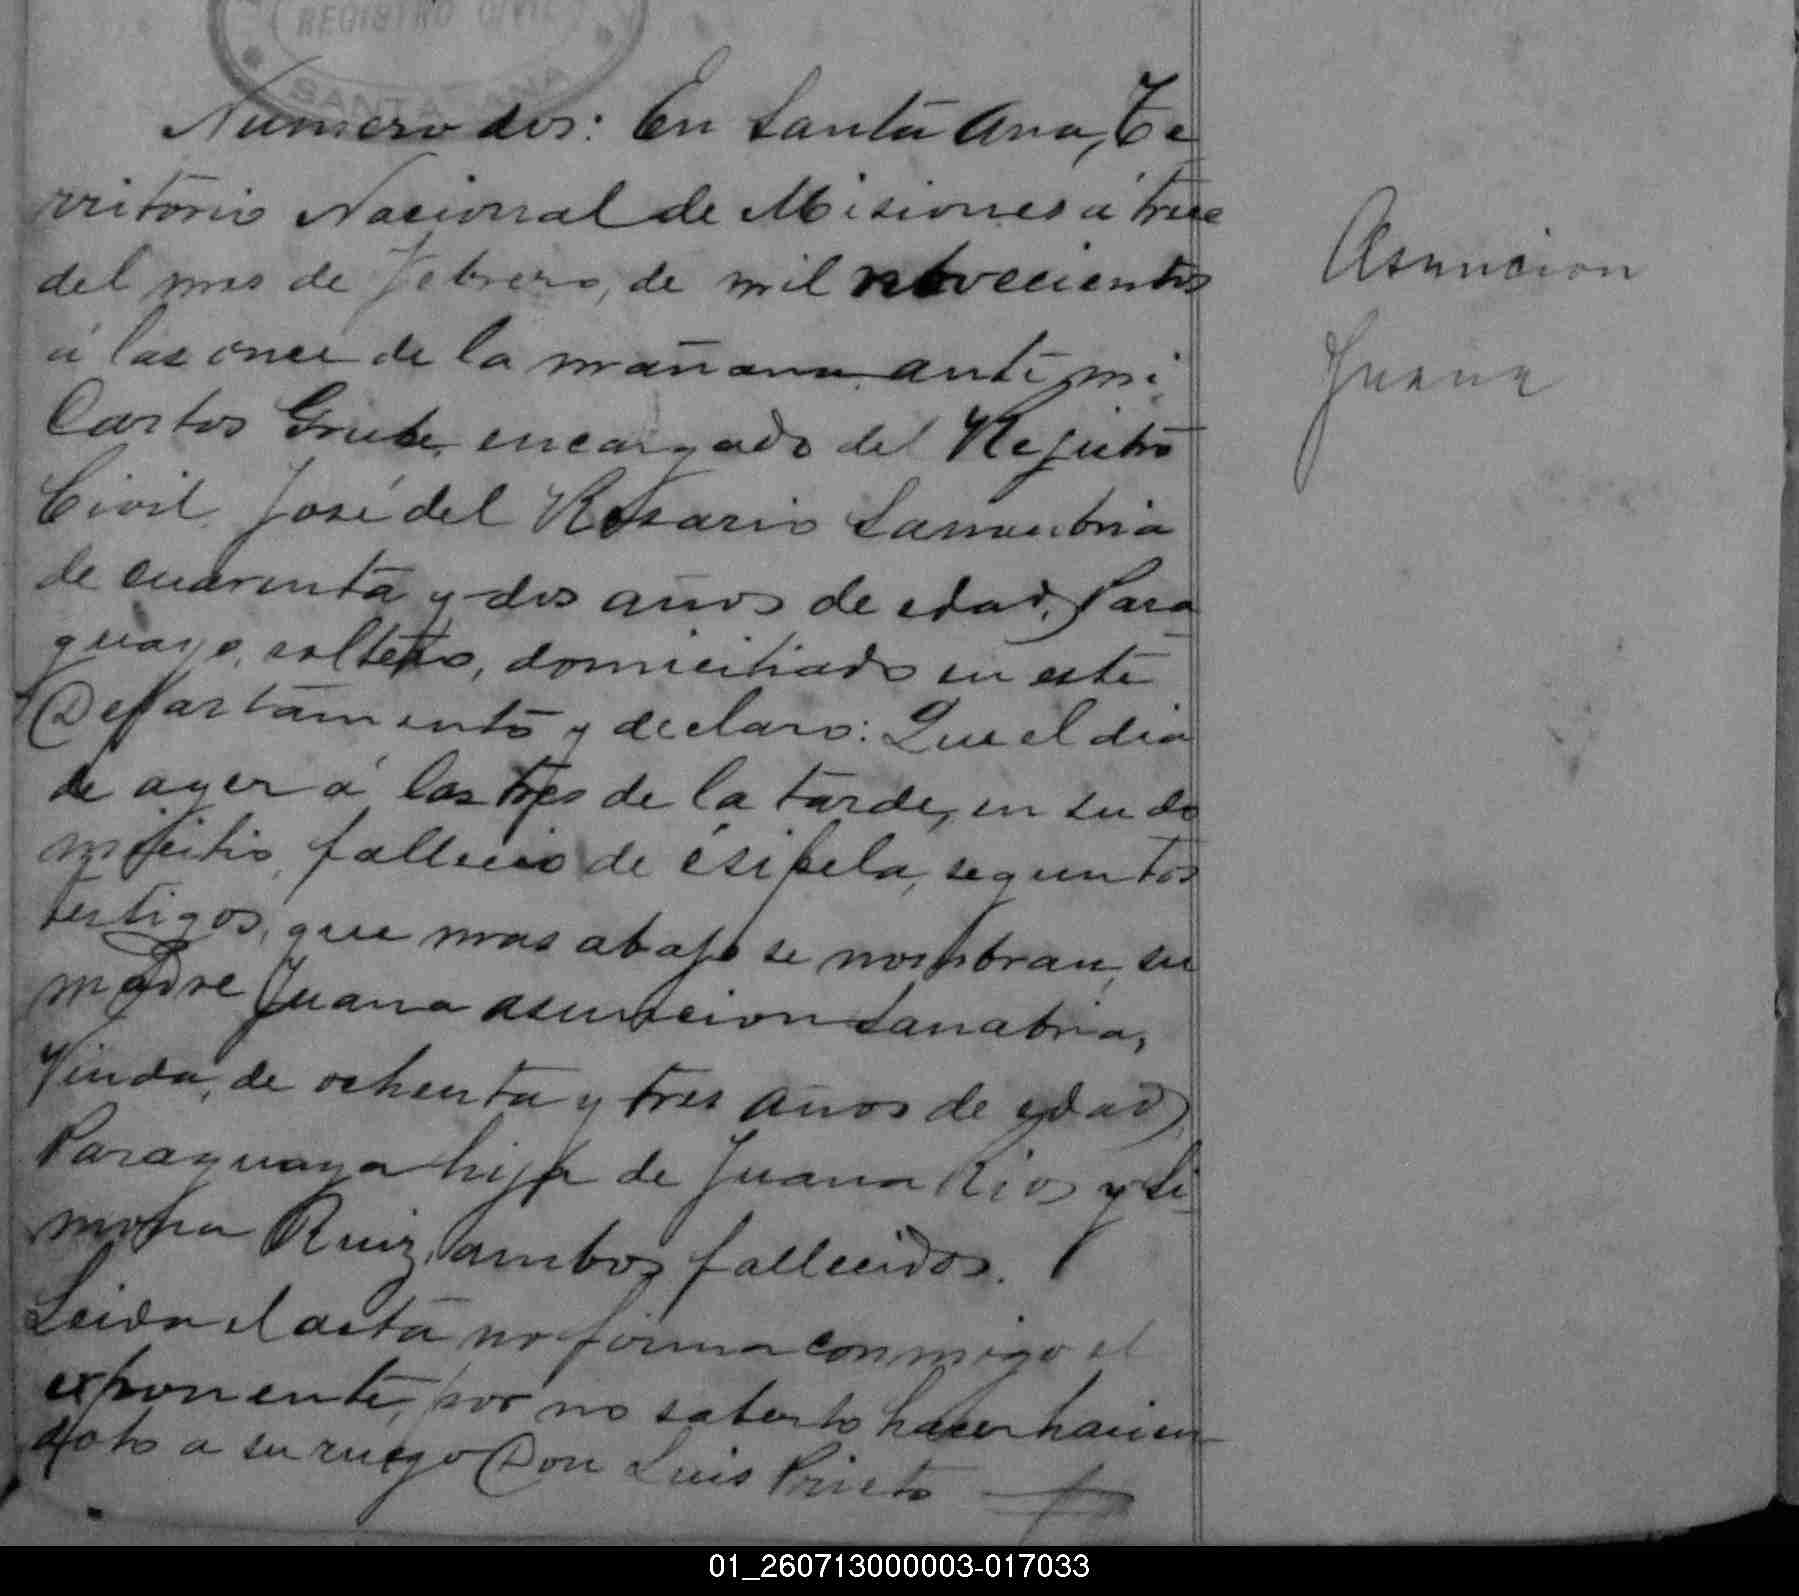 REGISTRO CIVIL
SANTA ANA
Numero dos: En Santa Ana, Te
rritorio Nacional de Misiones á trece
del mes de Febrero, de mil novecientos
á las once de la mañana ante mi
Carlos Grube, encargado del Rejistro
Civil, José del Rosario Sanabria
de cuarenta y dos años de edad, Para
guayo, soltero, domiciliado en este
Departamento y declaro: Que el dia
de ayer á las tres de la tarde, en su do
micilio, fallecio de ésipela, segun los
testigos, que mas abajo se nombran, su
madre Juana Asuncion Sanabria,
Viuda, de ochenta y tres años de edad,
Paraguaya hija de Juana Rios y Si
mona Ruiz, ambos fallecidos.
Leida el acta no firma conmigo el
exponente, por no saberlo hacer hacien-
dolo a su ruego Don Luis Prieto
Asuncion
Juana
01_260713000003-017033